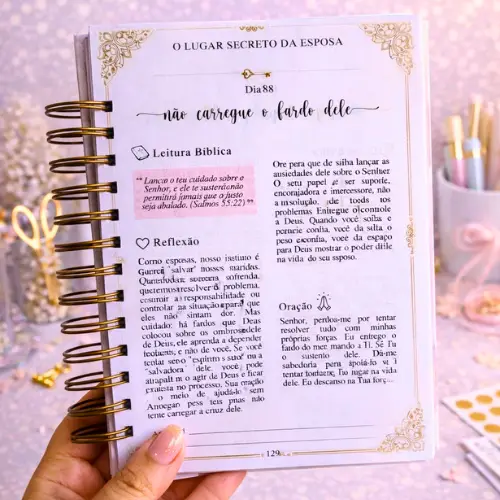 O LUGAR SECRETO DA ESPOSA
Dia 88
não carregue o fardo dele
Leitura Bíblica
"Lança o teu cuidado sobre o
Senhor, e ele te susterá não
permitirá jamais que o justo
seja abalado. (Salmos 55:22)"
Reflexão
Como esposas, nosso instinto é
"salvar" nossos maridos.
sofrendo,
problema,
a responsabilidade ou
controlar na situação para que
eles não sintam dor. Mas
cuidado: há fardos que Deas
colocou sobre os ombros dele
de Deus, ele aprenda a depender
e não de você. Se você
ou a
"salvadora" dele, você pode
o agir de Deus e ficar
no processo. Sua oração
o meio de ajudá-lo sem
carregar a cruz dele.
Ore para que de saiba lançar as
ansiedades dele sobre o Senhor
O seu papel é ser suporte,
encorajadora e intercessore, não
a resolução de todos os
problemas Entregue o controle
a Deus. Quando você solta e
confia, você da silta o
peso confia, você da espaço
para Deus mostrar o poder dele
na vida do seu esposo.
Oração
Senhor, perdoe-me por tentar
resolver tudo com minhas
próprias forças. Eu entrego o
fardo do meu marido a Ti. Sê Tu
o sustento dele. Dá-me
sabedoria para apoiá-lo
tentar no lugar na vida
dele. Eu descanso na Tua forç...
129